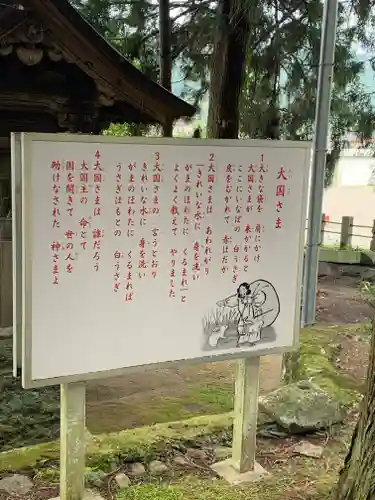 大国さま
1 大きな袋を 肩にかけ
大国さまが 来かかると
ここにいなばの 白うさぎ
皮をむかれて 赤はだか
2 大国さまは あわれがり
「きれいな水に 身を洗い
がまのほわたに くるまれ」と
よくよく教えて やりました
3 大国さまの 言うとおり
きれいな水に 身を洗い
がまのほわたに くるまれば
うさぎはもとの 白うさぎ
4 大国さまは 誰だろう
大国主の 命とて
国を開きて 世の人を
助けなされた 神さまよ